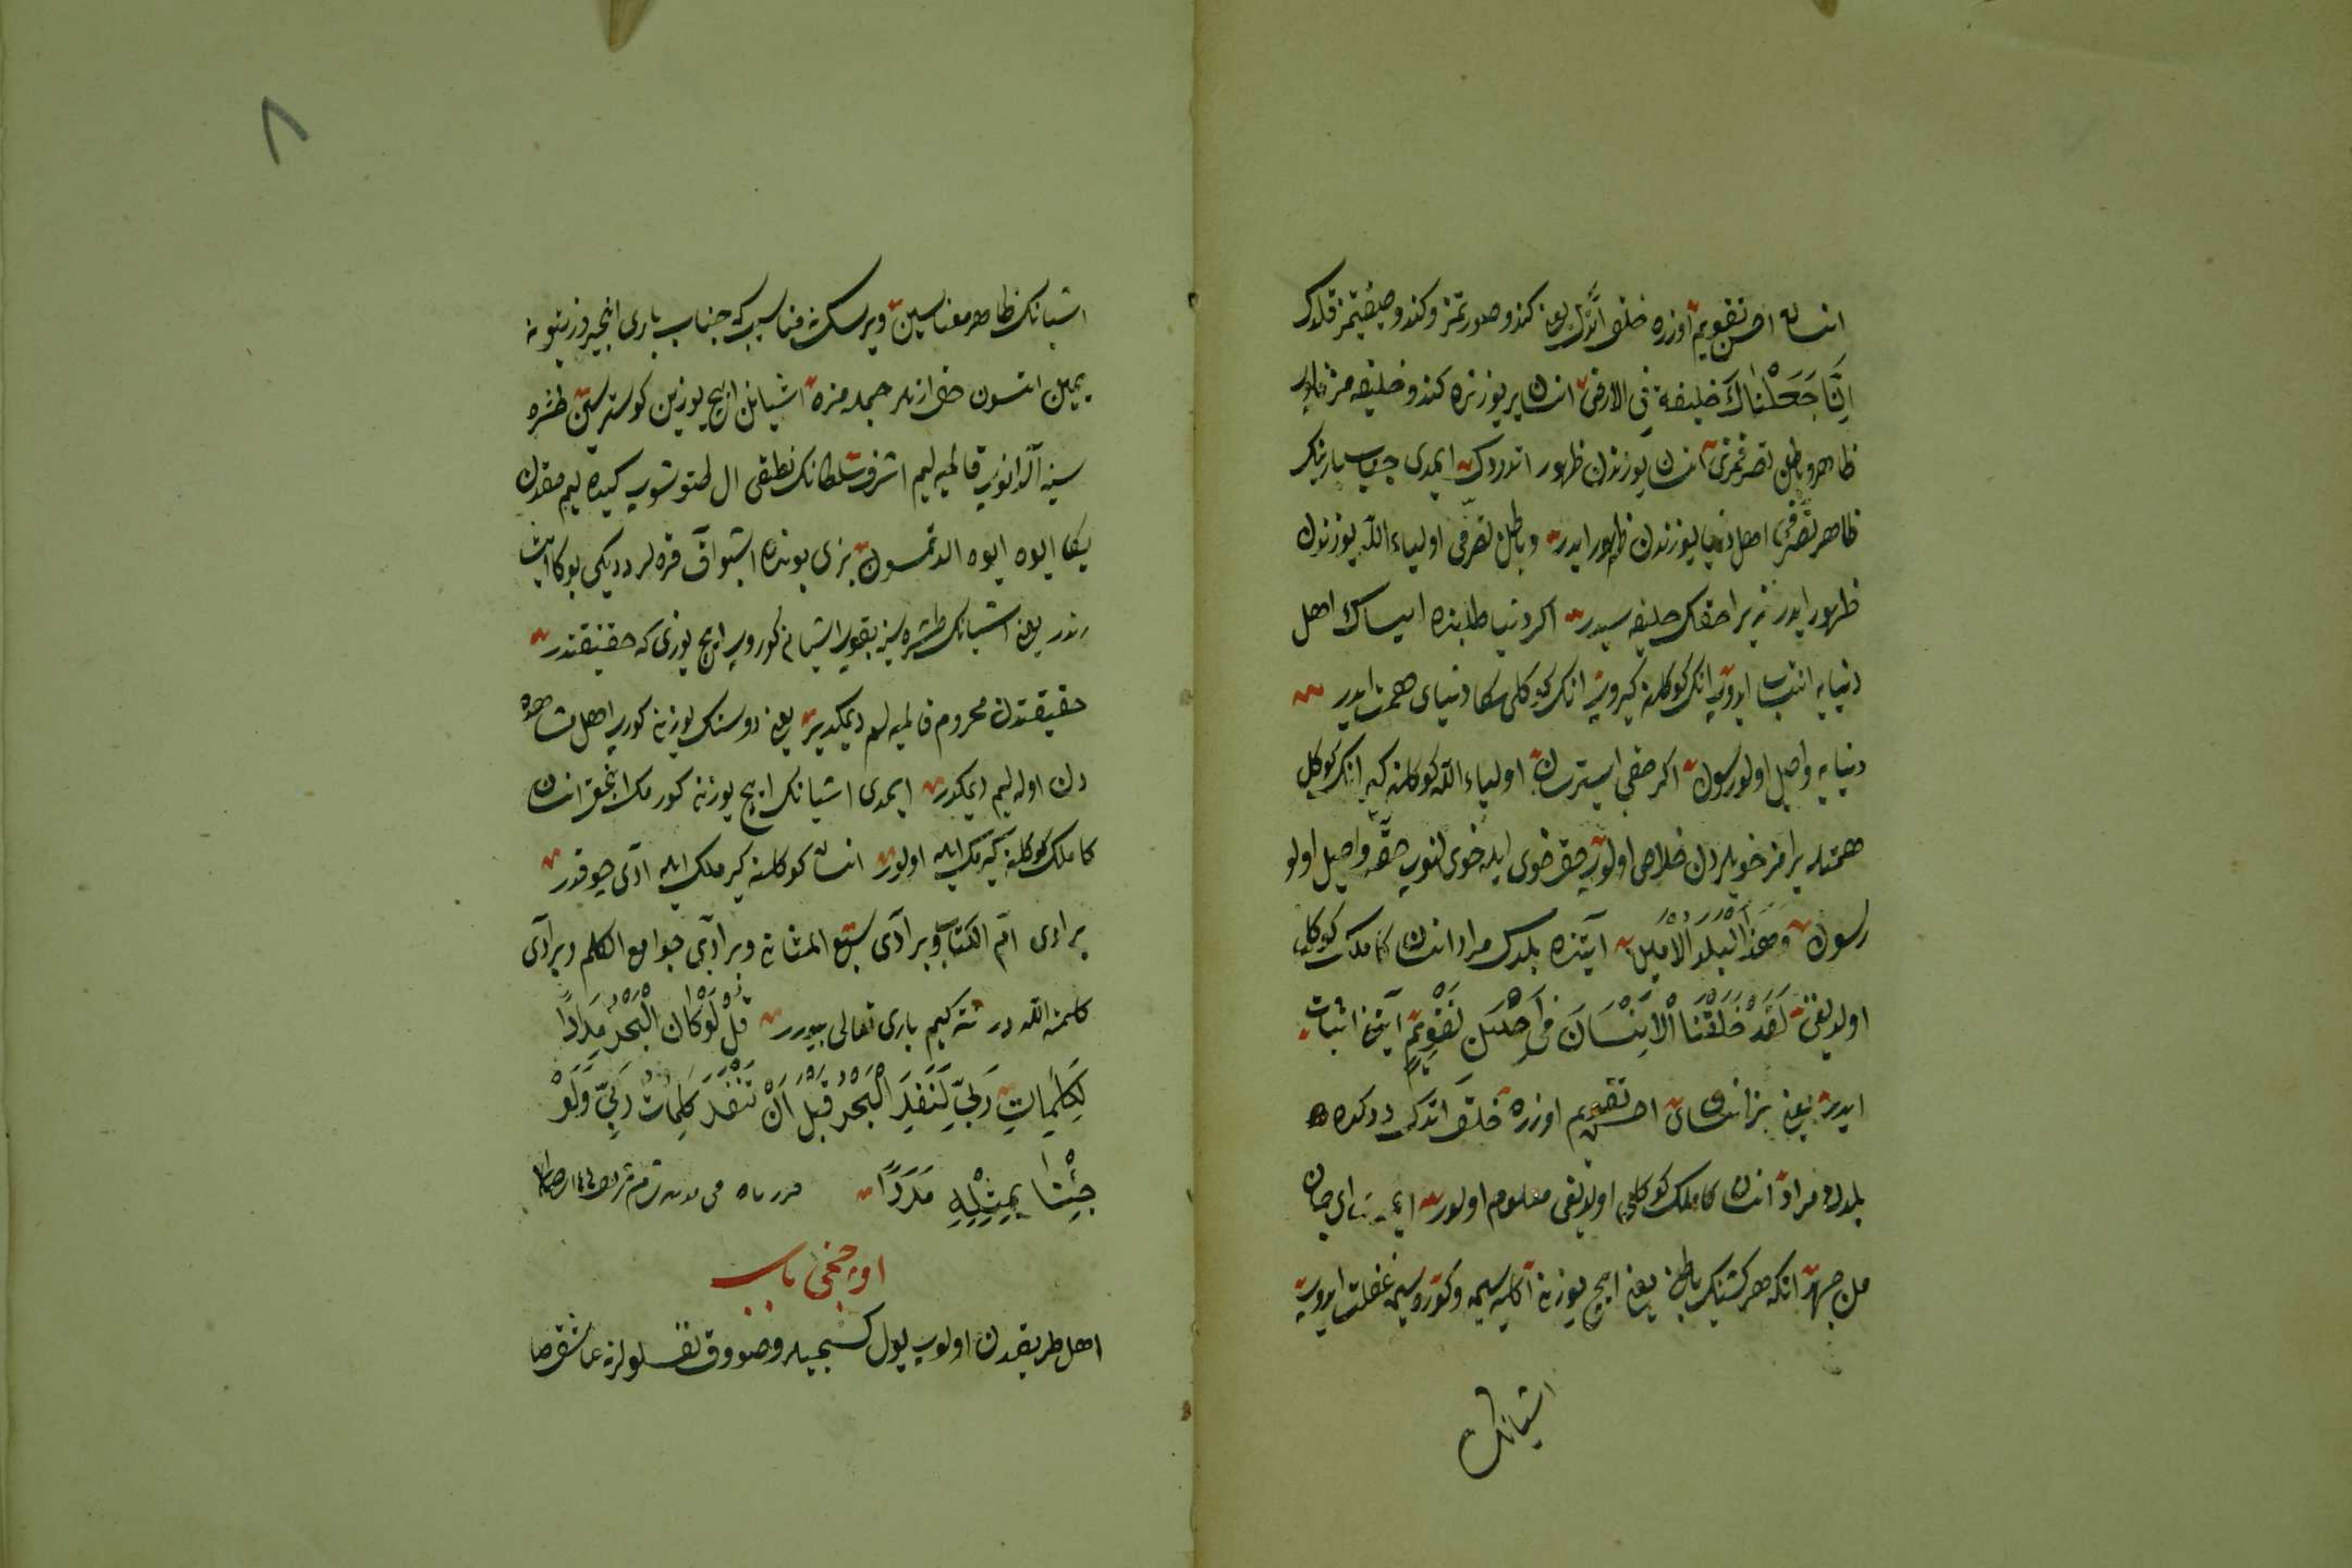 انسان احسن تقویم اوزره خلق اتدك یعنی كندو صورتمز وكندو صفتمز قلدك
اِنَّا جَعَلْنَاكَ خلیفة فی الارض انسان یر یوزنده كندو خلیفه مزدر
ظاهر وباطن تصرفمزی انسان یوزندن ظهور اتدردك ایمدی جناب بارینك
ظاهر تصرفی اهل دنیا یوزندن ظهور ایدر وباطن تصرفی اولیاء الله یوزندن
ظهور ایدر زیرا حقك خلیفه سیدر اكر دنیا طلبنده ایساك اهل
دنیایه انتساب ایدوب انك كوكلنه كیروب انك كوكلی سكا دنیای همت ایدر
دنیایه واصل اولورسون اكر حقی ایسترسك اولیاء الله كوكلنه كیر انك كوكل
همتیله یرامز خویلردن خلاص اولوب حق خوی ایله خویلنوب حقه واصل اولو
رسون وهذا البلد الامین ایتنده بلدك مراد انسان كاملك كوكلی
اولدیغی لَقَدْ خَلَقْنَا الْاِنْسَانَ فی اَحْسَنِ تَقْوِیمٍ آیتی اثبات
ایدر یعنی بز انسانی احسن تقویم اوزره خلق اتدك دددكده
بلددن مراد انسان كاملك كوكلی اولدیغی معلوم اولور ای جان
من جهد انكه هر كشینك باطنی یعنی ایچ یوزنه آكلیه سیه وكوره سیه غفلت ایدوب
اشیانك
٨
اشیانك ظاهر معناسین ویرسك نه مناسب كه جناب باری انجیر وزیتونه
یمین اتسون حق ازلر جمله مزه اشیانك ایچ یوزین كوسترسین طشره
سینه آلدانوب قالمیه لیم اشرف سلطانك نطقی ال طتوشوب كیده لیم حقدن
یكا ایوه ایوه الدتمسون بزی بونده اشبو آق قره لر ددیكی بوكا اشا
رتدر یعنی اشیانك طشره سینه بقوب اشیانی كوروب ایچ یوزی كه حقیقتدر
حقیقتدن محروم قالمیه لم دیمكدیر یعنی دوستك یوزینی كوروب اهل مشاهده
دن اوله لیم دیمكدر ایمدی اشیانك ایچ یوزنه كورمك انجق انسان
كاملك كوكلنه كیرمك ایله اولور انسان كوكلنه كیرمك ایله آدی چوقدر
بر آدی ام الكتاب وبر آدی سبع المثانی وبر آدی جوامع الكلم وبر آدی
كلمة الله در نته كیم باری تعالی بیورر قُلْ لَوْ كَانَ الْبَحْرُ مِدَادًا
لِكَلِمَاتِ رَبّی لَنَفِدَ الْبَحْرُ قَبْلَ اَنْ تَنْفَدَ كَلِمَاتُ رَبّی وَلَوْ
جِئْنَا بِمِثْلِهِ مَدَدًا
اوچنجی باب
اهل طریقدن اولوب یول كسیجیلر وصووق نفسلولرنه عاشق صا